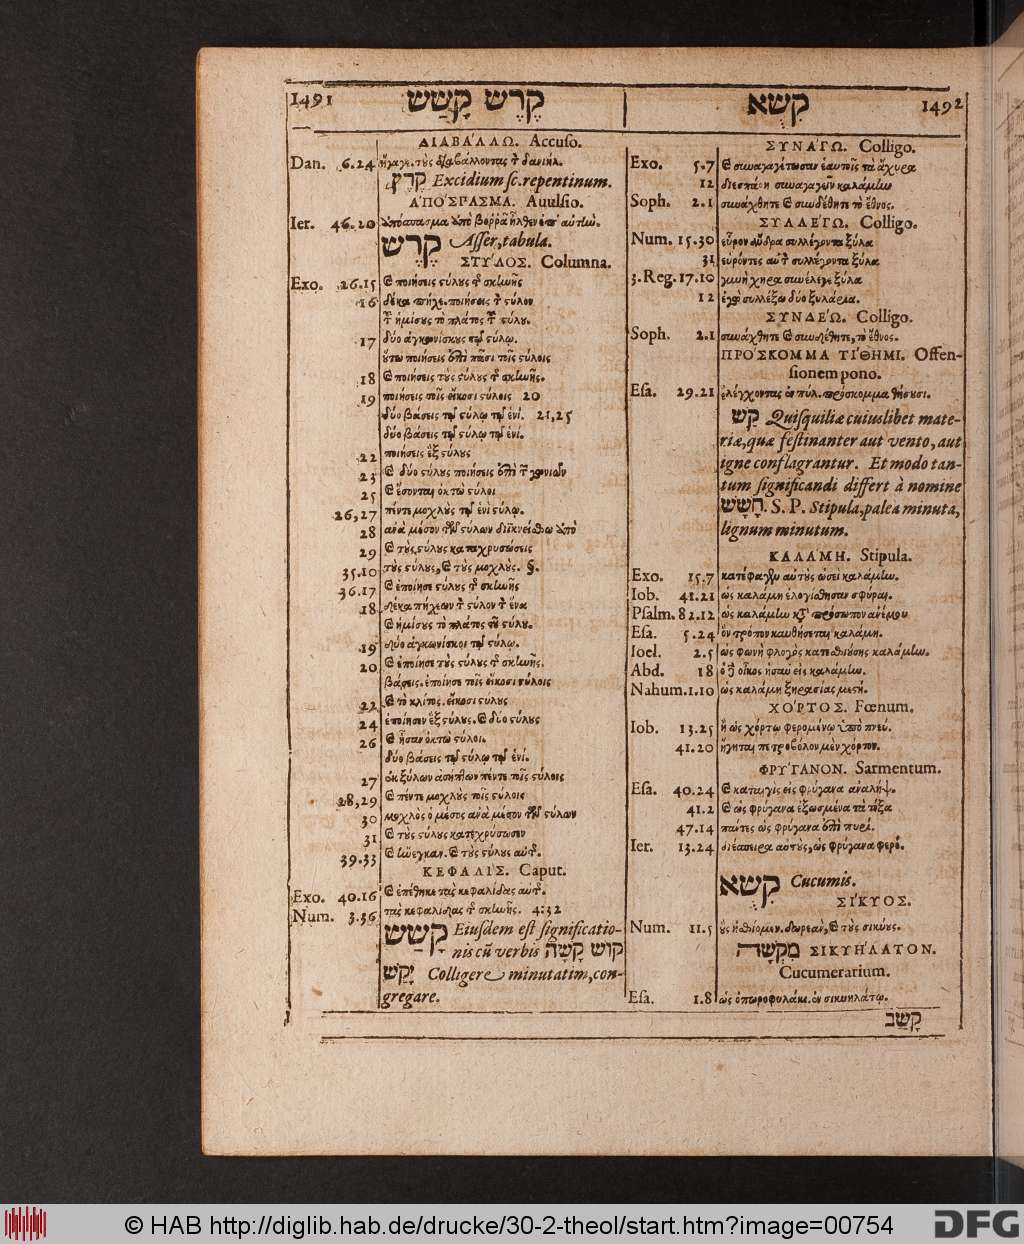 1491 קֶרֶשׁ קָשַׁשׁ
ΔΙΑΒΆΛΛΩ. Accuso.
Dan. 6.24 ἤγαγε. τοὺς διαβάλλοντας τ̃ δανιὴλ.
קֶרֶץ Excidium sc. repentinum.
ἈΠΌΣΠΑΣΜΑ. Avulsio.
Ier. 46.20 ἀπόσπασμα ἀπὸ βοῤῥᾶ ἦλθεν ἐπ' αὐτlώ.
קֶרֶשׁ Asser, tabula.
ΣΤΎΛΟΣ. Columna.
Exo. 26.15 καὶ ποιήσεις στύλους τ̃ σκlωῆς
16 δέκα πήχε. ποιήσεις τ̃ στύλον
τ̃ ἡμίσους τὸ πλάτος τ̃ στύλου.
17 δύο ἀγκωνίσκους τῷ στύλῳ.
οὕτω ποιήσεις ἐπὶ πᾶσι τοῖς στύλοις
18 καὶ ποιήσεις τοὺς στύλους τ̃ σκlωῆς.
19 ποιήσεις τοῖς εἴκοσι στύλοις 20
δύο βάσεις τῷ στύλῳ τῷ ἑνί. 21,25
δύο βάσεις τῷ στύλῳ τῷ ἑνί.
22 ποιήσεις ἓξ στύλους
23 καὶ δύο στύλους ποιήσεις ἐπὶ τ̃ γωνιῶν
25 καὶ ἔσονται ὀκτὼ στύλοι
26,27 πέντε μοχλοὺς τῷ ἑνὶ στύλῳ.
28 ἀνὰ μέσον τῶν στύλων διϊκνείσθω ἀπὸ
29 καὶ τοὺς στύλους καταχρυσώσεις
35.10 τοὺς στύλους, καὶ τοὺς μοχλοὺς. §.
36.17 καὶ ἐποίησε στύλους τ̃ σκlωῆς
18 δέκα πήχεων τ̃ στύλον τ̃ ἕνα
καὶ ἡμίσους τὸ πλάτος τοῦ στύλου.
19 δύο ἀγκωνίσκοι τῷ στύλῳ.
20 καὶ ἐποίησε τοὺς στύλους τ̃ σκlωῆς.
βάσεις. ἐποίησε τοῖς εἴκοσι στύλοις
22 καὶ τὸ κλίτος. εἴκοσι στύλους
24 ἐποίησεν ἓξ στύλους. καὶ δύο στύλους
26 καὶ ἦσαν ὀκτὼ στύλοι.
δύο βάσεις τῷ στύλῳ τῷ ἑνί.
27 ἐκ ξύλων ἀσήπτων πέντε τοῖς στύλοις
28,29 καὶ πέντε μοχλοὺς τοῖς στύλοις
30 μοχλὸς ὁ μέσος ἀνὰ μέσον τῶν στύλων
31 καὶ τοὺς στύλους κατεχρύσωσεν
39.33 καὶ lώεγκαν. καὶ τοὺς στύλους αὐτ̃.
ΚΕΦΑΛΊΣ. Caput.
Exo. 40.16 καὶ ἐπέθηκε τὰς κεφαλίδας αὐτ̃.
Num. 3.36 τὰς κεφαλίδας τ̃ σκlωῆς. 4:32
קָשַׁשׁ Eiusdem est significatio-
nis cũ verbis קָשָׁה קוש
יָקַשׁ Colligere minutatim, con-
gregare.
קִשֻּׁא 1492
ΣΥΝΆΓΩ. Colligo.
Exo. 5.7 καὶ συναγαγέτωσαν ἑαυτοῖς τὰ ἄχυρα
12 διεσπάρη συναγαγεῖν καλάμlω
Soph. 2.1 συνάχθητε καὶ συνδέθητε τὸ ἔθνος.
ΣΥΛΛΈΓΩ. Colligo.
Num. 15.30 εὗρον ἄνδρα συλλέγοντα ξύλα
31 εὑρόντες αὐτ̃ συλλέγοντα ξύλα
3. Reg. 17.10 γυνὴ χήρα συνέλεγε ξύλα
12 ἐγὼ συλλέξω δύο ξυλάρια.
ΣΥΝΔΈΩ. Colligo.
Soph. 2.1 συνάχθητε καὶ συνδέθητε, τὸ ἔθνος.
ΠΡΌΣΚΟΜΜΑ ΤΊΘΗΜΙ. Offen-
sionem pono.
Esa. 29.21 ἐλέγχοντας ἐν πύλ. πρόσκομμα θήσουσι.
קַשׁ Quisquiliæ cuiuslibet mate-
riæ, quæ festinanter aut vento, aut
igne conflagrantur. Et modo tan-
tum significandi differt à nomine
חָשָׁשׁ. S. P. Stipula, palea minuta,
lignum minutum.
ΚΑΛΆΜΗ. Stipula.
Exo. 15.7 κατέφαγεν αὐτοὺς ὡσεὶ καλάμlω.
Iob. 41.21 ὡς καλάμη ἐλογίσθησαν σφύραι.
Psalm. 82.12 ὡς καλάμlω κτ̃ πρόσωπον ἀνέμου
Esa. 5.24 ὃν τρόπον καυθήσεται καλάμη.
Ioel. 2.5 ὡς φωνὴ φλογὸς κατεσθιούσης καλάμlω.
Abd. 18 ὁ δὲ οἶκος ἠσαῦ εἰς καλάμlω.
Nahum. 1.10 ὡς καλάμη ξηρασίας μεστή.
ΧΌΡΤΟΣ. Fœnum.
Iob. 13.25 ἢ ὡς χόρτῳ φερομένῳ ὑπὸ πνεύ.
41.20 ἥγηται πετροβόλον μὲν χόρτον.
ΦΡΎΓΑΝΟΝ. Sarmentum.
Esa. 40.24 καὶ καταιγὶς εἰς φρύγανα ἀναλήψ.
41.2 καὶ ὡς φρύγανα ἐξωσμένα τὰ τόξα
47.14 πάντες ὡς φρύγανα ἐπὶ πυρί.
Ier. 13.24 διέσπειρα αὐτοὺς, ὡς φρύγανα φερό.
קִשֻּׁא Cucumis.
ΣΊΚΥΟΣ.
Num. 11.5 οὓς ἠσθίομεν. δωρεὰν, καὶ τοὺς σικύους.
מִקְשָׁה ΣΙΚΥΉΛΑΤΟΝ.
Cucumerarium.
Esa. 1.8 ὡς ὀπωροφυλάκι. ἐν σικυηλάτῳ.
קָשַׁב
© HAB http://diglib.hab.de/drucke/30-2-theol/start.htm?image=00754
DFG